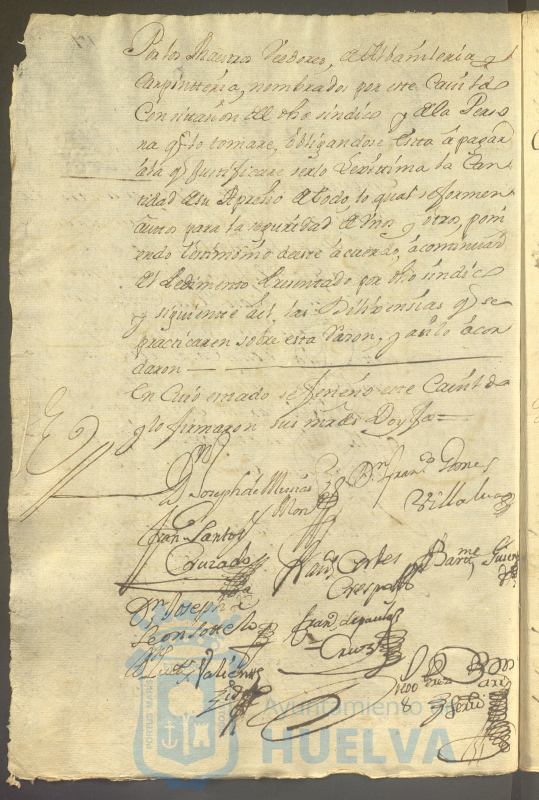 Por los Maestros Veedores, de Albañileria, y
Carpinteria, nombrados por este Cavildo
Con citazion del dho sindico y de la Perso
na qe lo tomare, obligandose esta à pagar
la Can
tidad de su Aprecio de todo, lo qual se formen
Autos para la seguridad de Vnos, y otros, poni
endo testimonio deeste àcuerdo, àcontinuazn
del Pedimento Presentado por dho sindico
y siguiente âel, las Dilixensias qe se
practicaren sobre esta razon, y asi lo àcor
daron
En Cuio estado se feneció este Cavildo
y lo firmaron sus mrds Doy fe =
Dn Joseph de
Dn Franco Gomes
Villalua
Fran Santos
Cruzado
Cortes
Crespo
Barme
Dn Joseph
Leon Sotelo
Fran de paula
Cruz
Valiente
Ayuntamiento de
HUELVA